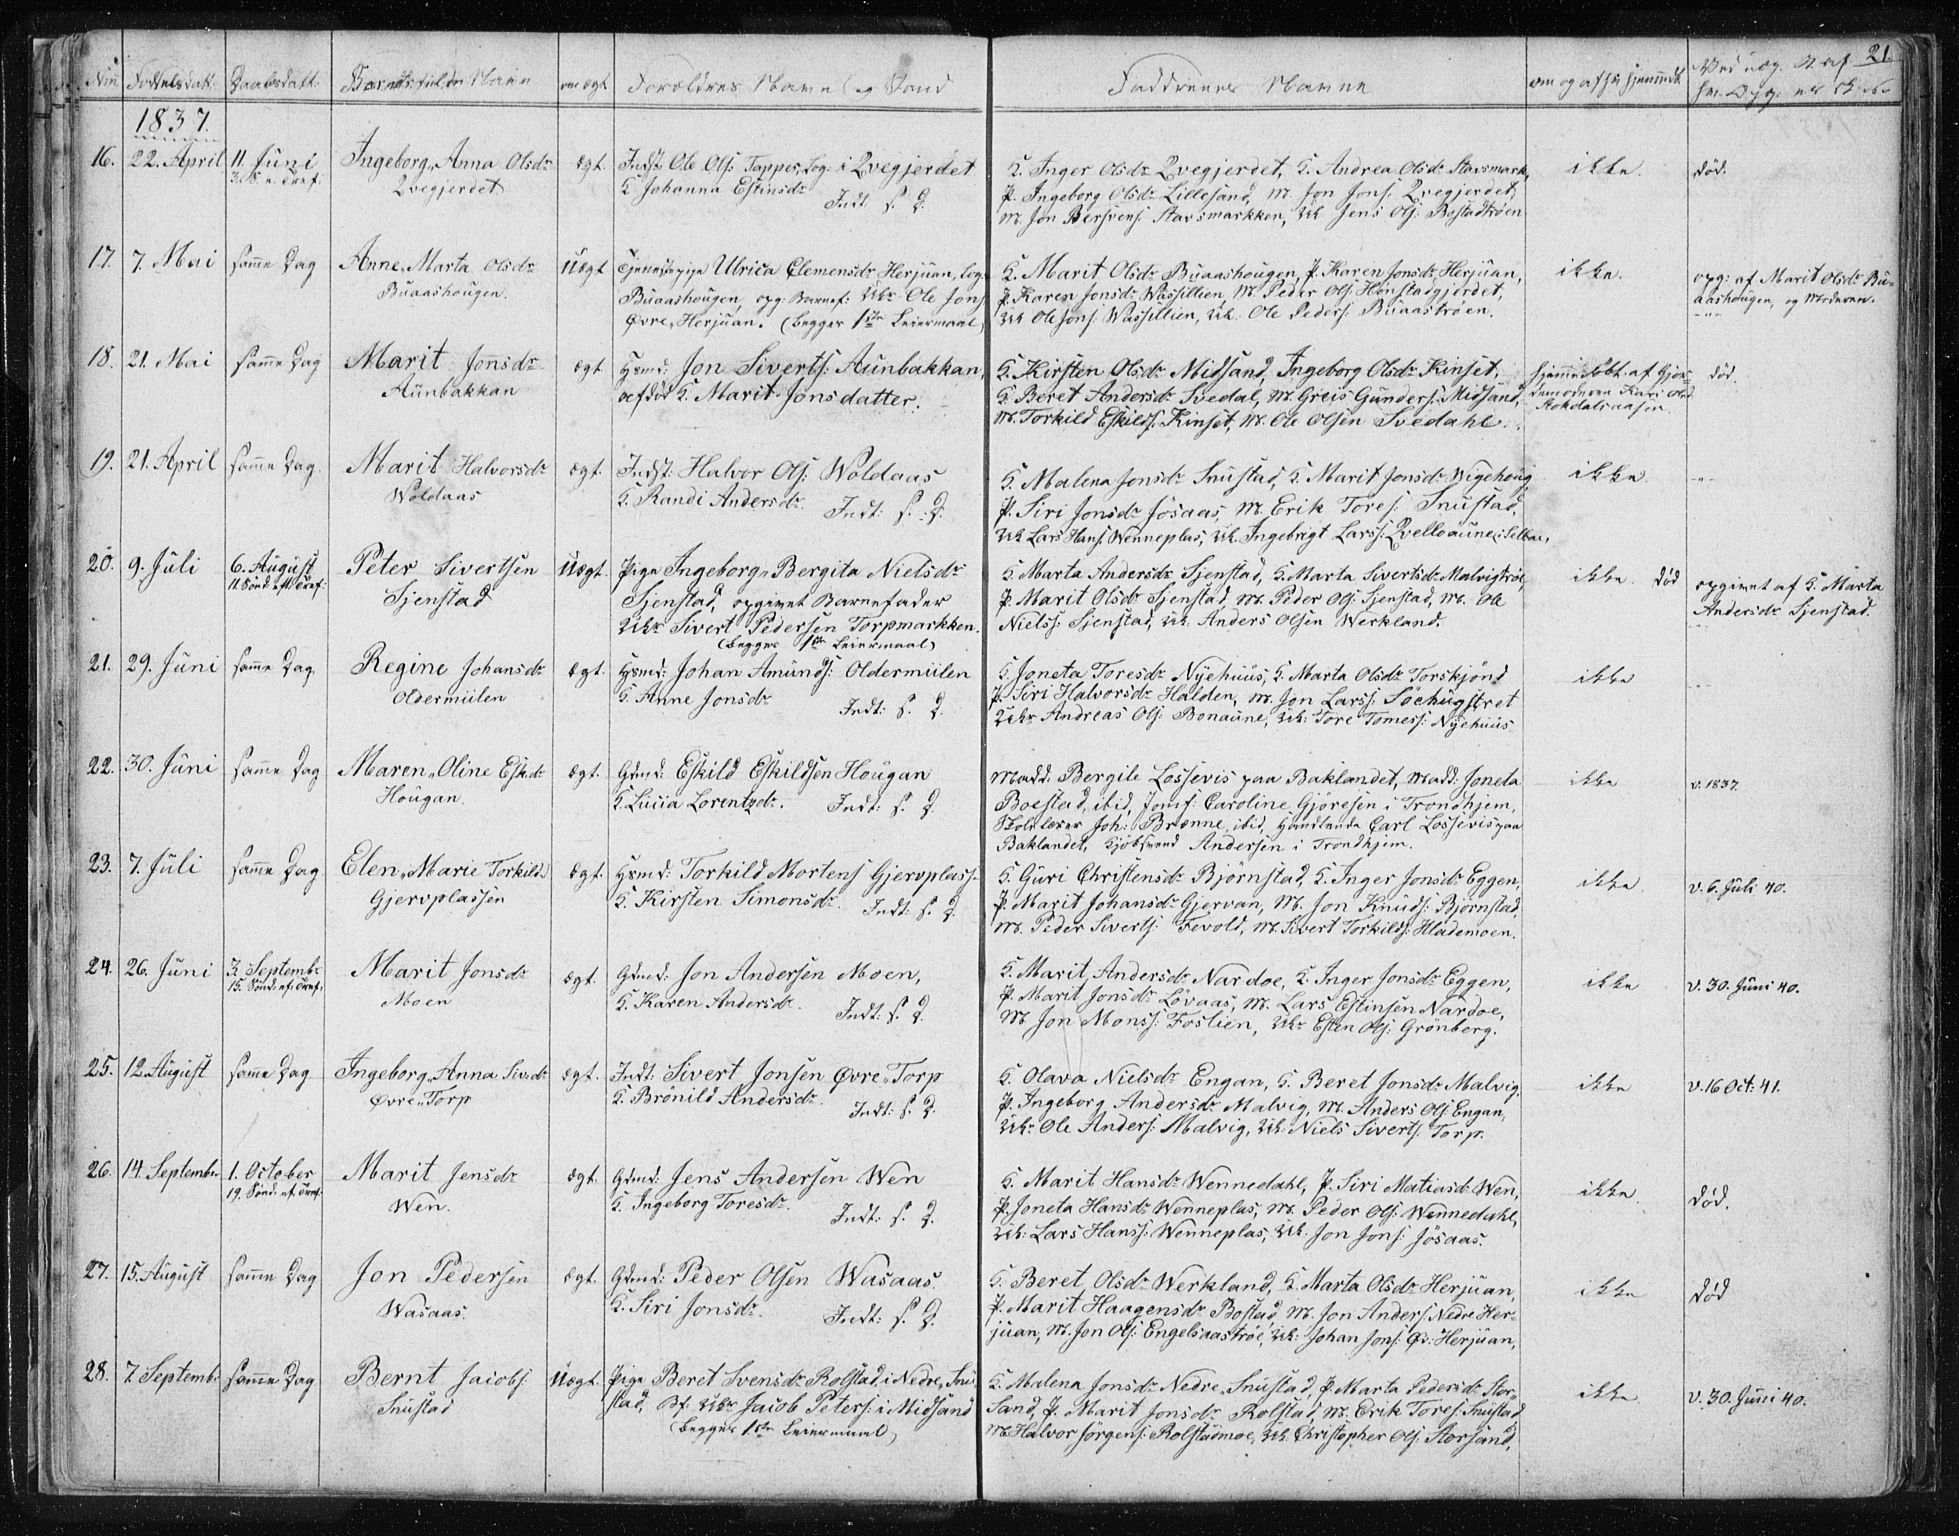 21
Barnets fulde Navn om ægt Forældres Navn og Stand Faddrenes Navne
1837.
16. 22. April 11. Juni Ingeborg Anna Olsdr ægt. Indst Ole Ols: Tapper, Log: i Qvegjerdet G. Inger Olsdr Qvegjerdet, G. Andrea Olsdr Stavsmark, ikke. død.
Qvegjerdet G. Johanna Estinsdr Indt. S. D. P. Ingeborg Olsdr Lillesand, M. Jon Jons: Qvegjerdet,
M. Jon Bersvens: Stavsmarkken, Uk Jens Ols: Bostadtrøen
17. 7. Mai samme Dag Anne Marta Olsdr Uægt Tjenestepige Ulrica Clemensdr Herjuan, Log: G. Marit Olsdr Buaashougen, P. Karen Jonsdr Herjuan, ikke. opg: af Marit Olsdr Bu-
Buaashougen. Buaashougen opg: Barnef: Ukr Ole Jons P. Karen Jonsdr Wassillien, M. Peder Ols: Honstadgjerdet, aashougen, og Moderen.
Øvre Herjuan. (begges 1ste Leiermaal) Uk Ole Jons: Wassillien, Uk: Ole Peders: Buaastrøen.
18. 21. Mai samme Dag Marit Jonsdr ægt Hsmd: Jon Siverts: Aunbakkan, G. Kirsten Olsdr Midsand, Ingeborg Olsdr Kinset, hjemmedøbt af Gjor- død.
Aunbakkan afdød G. Marit Jonsdatter. G. Beret Andersdr Svedal, M. Greis Gunders: Midsand, demoderen Kari Olsd
M. Torkild Eskilds: Kinset, M. Ole Olsen Svedahl. Stokdalsaasen
19. 21. April samme Dag. Marit Halvorsdr ægt. Indst: Halvor Ols: Woldaas G. Malena Jonsdr Snustad, G. Marit Jonsdr Wigehoug ikke.
Woldaas G. Randi Andersdr. Indt: S. D. P. Siri Jonsdr Jøsaas, M. Erik Tores: Snustad,
Uk Lars Hans: Wenneplas, Uk. Ingebrigt Larss: Qvelloaune i Selboe,
20. 9. Juli 6. August Peter Sivertsen Uægt. Pige Ingeborg Bergita Nielsdr G. Marta Andersdr Sjenstad, G. Marta Sivertsdr Malvigtrøe, ikke. død opgivet af G. Marta
11. Sønd. eft Tref: Sjenstad Sjenstad, opgivet Barnefader P. Marit Olsdr Sjenstad, M. Peder Ols: Sjenstad, M. Ole Andersdr Sjenstad.
Ukr Sivert Pedersen Torpmarkken. Niels: Sjenstad, Uk. Anders Olsen Werkland.
(begges 1ste Leiermaal)
21. 29. Juni samme Dag. Regine Johansdr ægt. Hsmd: Johan Amunds: Oldermulen G. Joneta Toresdr Nyehuus, G. Marta Olsdr Torskjønd ikke
Oldermulen G. Anne Jonsdr Indt: S. D. P. Siri Halvorsdr Halden, M. Jon Larss: Söehugstret
Ukr Andreas Ols: Bonaune, Uk: Tore Tomess: Nyehuus
22. 30. Juni samme Dag Maren Oline Eskdr ægt. Gdmd: Eskild Eskildsen Hougan Madd: Bergile Lossevis paa Baklandet, Madd: Joneta ikke v. 1837
Hougan. G. Lucia Lorentzdr. Indt: S. D. Boestad, ibid, Jomf: Caroline Gjøresen i Trondhjem,
Skolelærer Joh: Brænne, ibid, Handlende Carl Lossevis paa
Baklandet, Kjøbsvend Andersen i Trondhjem.
23. 7. Juli samme Dag Elen Marie Torkild: ægt. Hsmd: Torkild Mortens Gjervplass. G. Guri Christensdr Bjørnstad, G. Inger Jonsdr Eggen, ikke. v. 6. Juli 40.
Gjervplassen G. Kirsten Simonsdr. Indt: S. D. P. Marit Johansdr Gjervan, M. Jon Knuds: Bjørnstad,
M. Peder Siverts: Fevold, M. Sivert Torkilds: Hlademoen.
24. 26. Juni 3. Septembr Marit Jonsdr ægt. Gdmd: Jon Andersen Moen, G. Marit Andersdr Nardoe, G. Inger Jonsdr Eggen, ikke v. 30. Juni 40.
15. Sønd: ef: Tref: Moen G. Karen Andersdr. Indt: S. D. P. Marit Jonsdr Løvaas, M. Lars Estinsen Nardoe,
M. Jon Monss: Foslien, Ukr Esten Ols: Grønberg.
25. 12. August samme Dag Ingeborg Anna Siv:dr ægt. Indt: Sivert Jonsen Øvre Torp G. Olava Nielsdr Engan, G. Beret Jonsdr Malvig, ikke v. 16 Oct: 41.
Øvre Torp G. Brønild Andersdr. Indt: S. D. P. Ingeborg Andersdr Malvig, M. Anders Ols: Engan,
Ukr Ole Anders: Malvig, Uk: Niels Siverts: Torp.
26. 14. September 1. October Marit Jensdr ægt. Gdmd: Jens Andersen Wen G. Marit Hansdr Wennedahl, P. Siri Matiasdr Wen, ikke. død.
19. Sønd: ef. Tref: Wen. G. Ingeborg Toresdr. Indt: S. D. P. Joneta Hansdr Wenneplas, M. Peder Ols: Wennedahl,
Uk: Lars Hanss: Wenneplas, Uk. Jon Jons: Jösaas.
27. 15. August samme Dag Jon Pedersen ægt. Gdmd: Peder Olsen Wasaas. G. Beret Olsdr Werkland, G. Marta Olsdr Herjuan, ikke død
Wasaas. G. Siri Jonsdr. Indt: S. D. P. Marit Haagensdr Bostad, M. Jon Anders: Nedre Her-
juan, M. Jon Ols: Engelsaastrøe, Uk: Johan Jons: Øv: Herjuan,
28. 7 Septembr samme Dag Bernt Jacobs: Uægt. Pige Beret Svensdr Rolstad i Nedre Snu- G. Malena Jonsdr Nedre Snustad, P. Marta Pedersdr Stor- ikke v. 30. Juni 40.
Snustad stad, Bf: Ukr Jacob Peters: i Midsand Sand, P. Marit Jonsdr Rolstad, M. Erik Tores: Snustad
(begges 1ste Leiermaal) M. Halvor Jörgens: Rolstadmoe, Uk. Christopher Ols: Storsand.